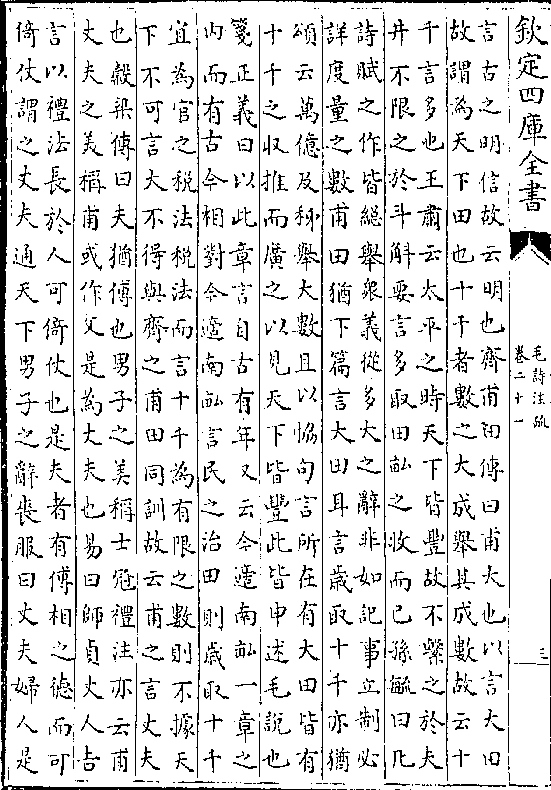 欽定四庫全書
毛詩注疏
卷二十一
三
言古之明信故云明也齊甫田傳曰甫大也以言大田
故謂為天下田也十千者數之大成舉其成數故云十
千言多也王肅云太平之時天下皆豐故不繫之於夫
井不限之於斗斛要言多取田畝之收而已孫毓曰凡
詩賦之作皆總舉衆義從多大之辭非如記事立制必
詳度量之數甫田猶下篇言大田耳言歲取十千亦猶
頌云萬億及秭舉大數且以恊句言所在有大田皆有
十千之收推而廣之以見天下皆豐此皆申述毛說也
箋正義曰以此章言自古有年又云今適南畝一章之
内而有古今相對今適南畝言民之治田則歲取十千
宜為官之稅法稅法而言十千為有限之數則不據天
下不可言大不得與齊之甫田同訓故云甫之言丈夫
也縠梁傳曰夫猶傅也男子之美稱士冠禮注亦云甫
丈夫之美稱甫或作父是為丈夫也易曰師貞丈人吉
言以禮法長於人可倚仗也是夫者有傅相之德而可
倚仗謂之丈夫通天下男子之辭喪服曰丈夫婦人是